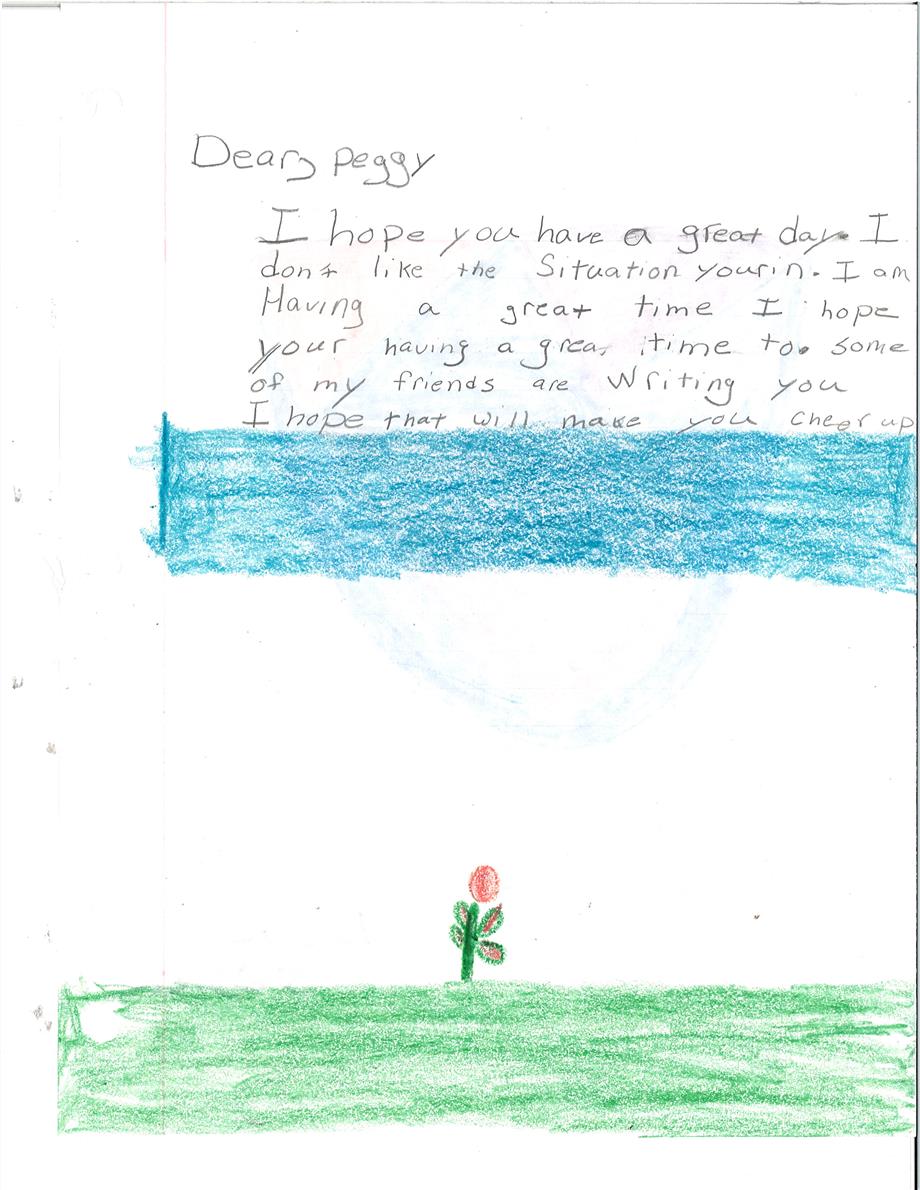 Dear, peggy
I hope you have a great day. I
dont like the Situation yourin. I am
Having a great time I hope
your having a grea, time to. some
of my friends are Writing you
I hope that will make you cheer up